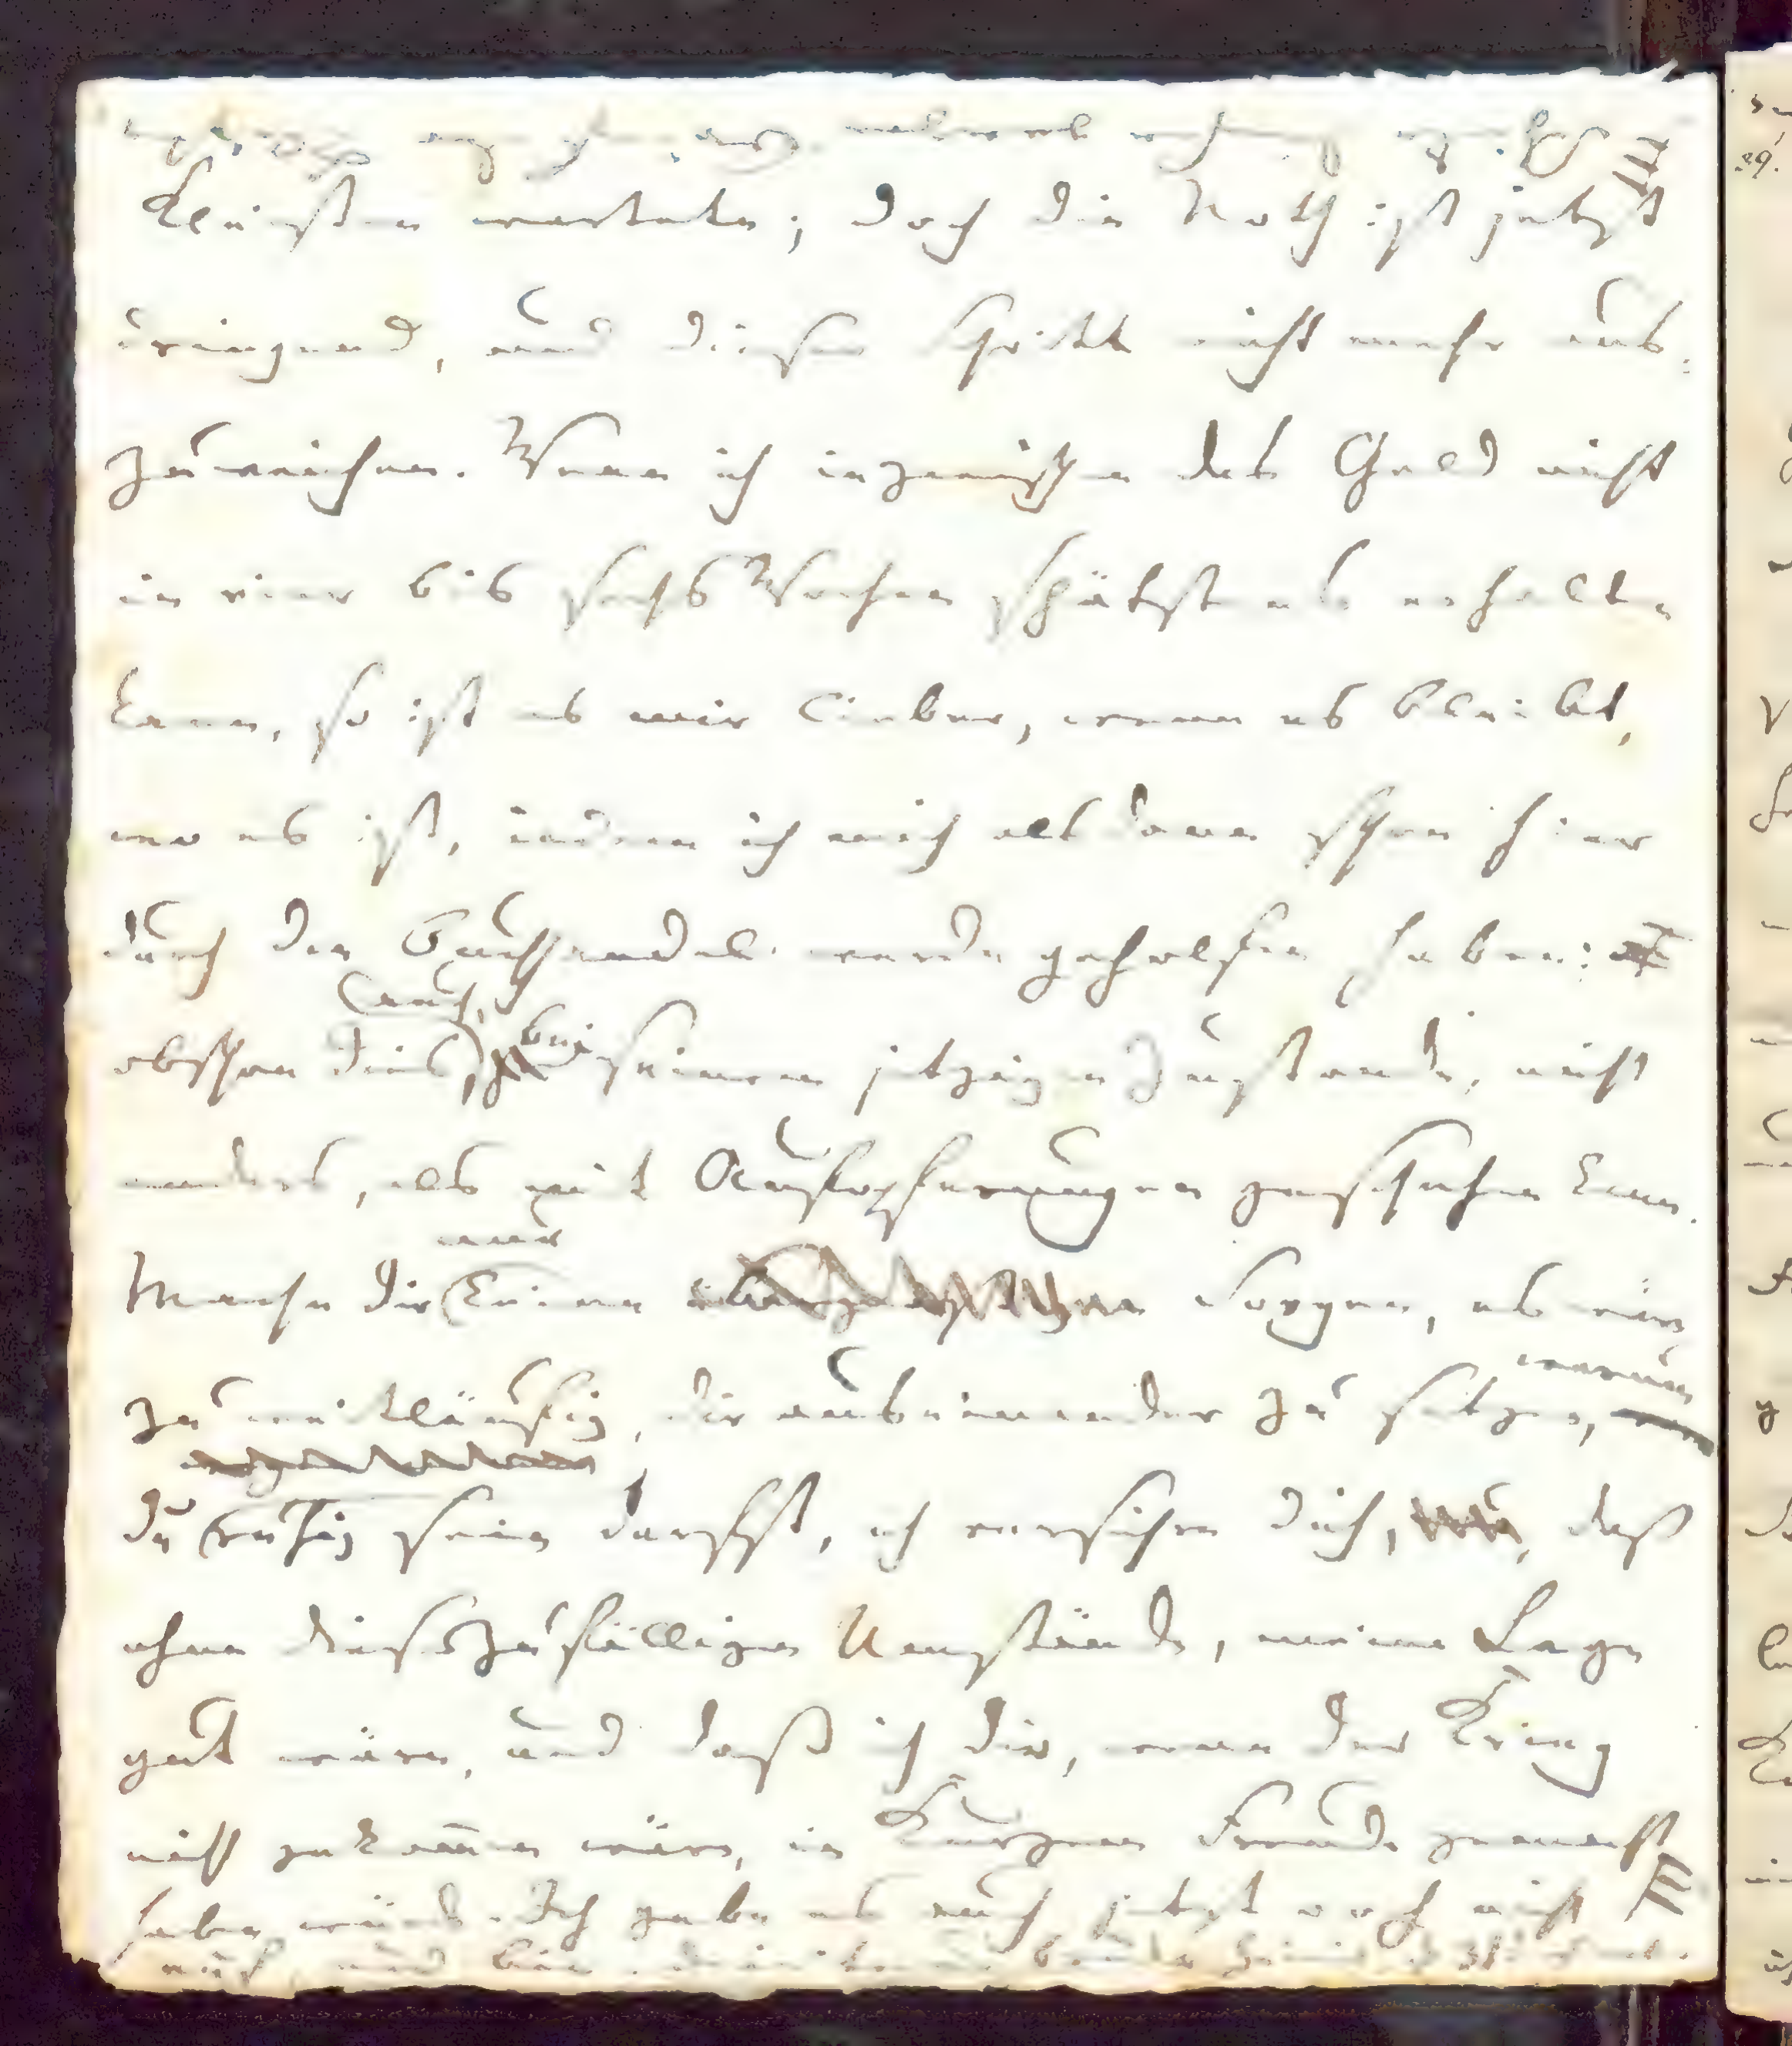 Kleinsten verlaten; doch die Noth ist jetzt
dringend, und dieser Schritt nicht mehr aus-
zuweichen. Wenn ich inzwischen das Geld nicht
in vier bis sechs Wochen spätstens erhalten
kann, so ist es mir lieber, wenn es bleibt,
wo es ist, indem ich mich alsdann schon hier
durch den Buchhandel werde geholfen haben:
auch,
obschon dies, bei seinem jetzigen Zustande, nicht
anders, als mit Aufopferungen geschehen kann.
nur
Mache dir keine Sorgen, es wäre
warum
zu weitläufig, dir auseinander zu setzen,
du ruhig sein darfst, ich versichre dich, daß
ohne diese zufälligen Umstände, meine Lage
gut wäre, und daß ich dir, wenn der Krieg
nicht gekommen wäre, in Kurzem Freude gemacht
haben würde. Ich gebe es auch jetzt noch nicht
auf, und bin